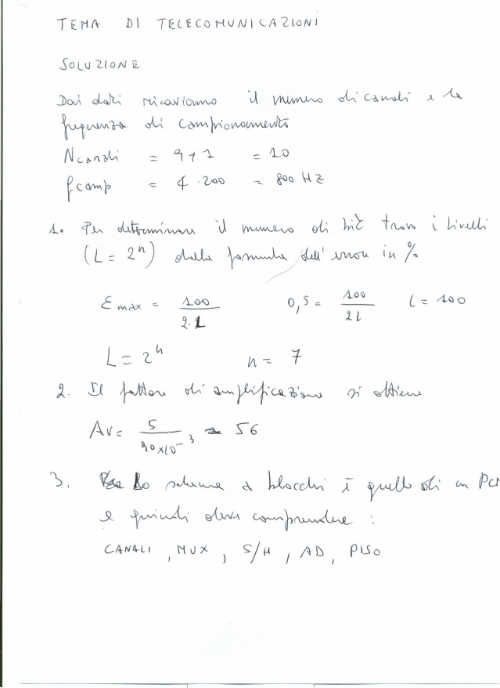 TEMA DI TELECOMUNICAZIONI
SOLUZIONE
Dai dati ricaviamo il numero di canali e la
frequenza di campionamento
Ncanali = 9+1 = 10
fcamp = 4·200 = 800 HZ
1. Per determinare il numero di bit trovo i livelli
(L = 2^n) dalla formula dell'errore in %
Emax = 100/2·L 0,5 = 100/2L L = 100
L = 2^n n = 7
2. Il fattore di amplificazione si ottiene
Av = 5/90x10^-3 = 56
3. Lo schema a blocchi è quello di un PCM
e quindi deve comprendere :
CANALI , MUX , S/H , AD , PISO